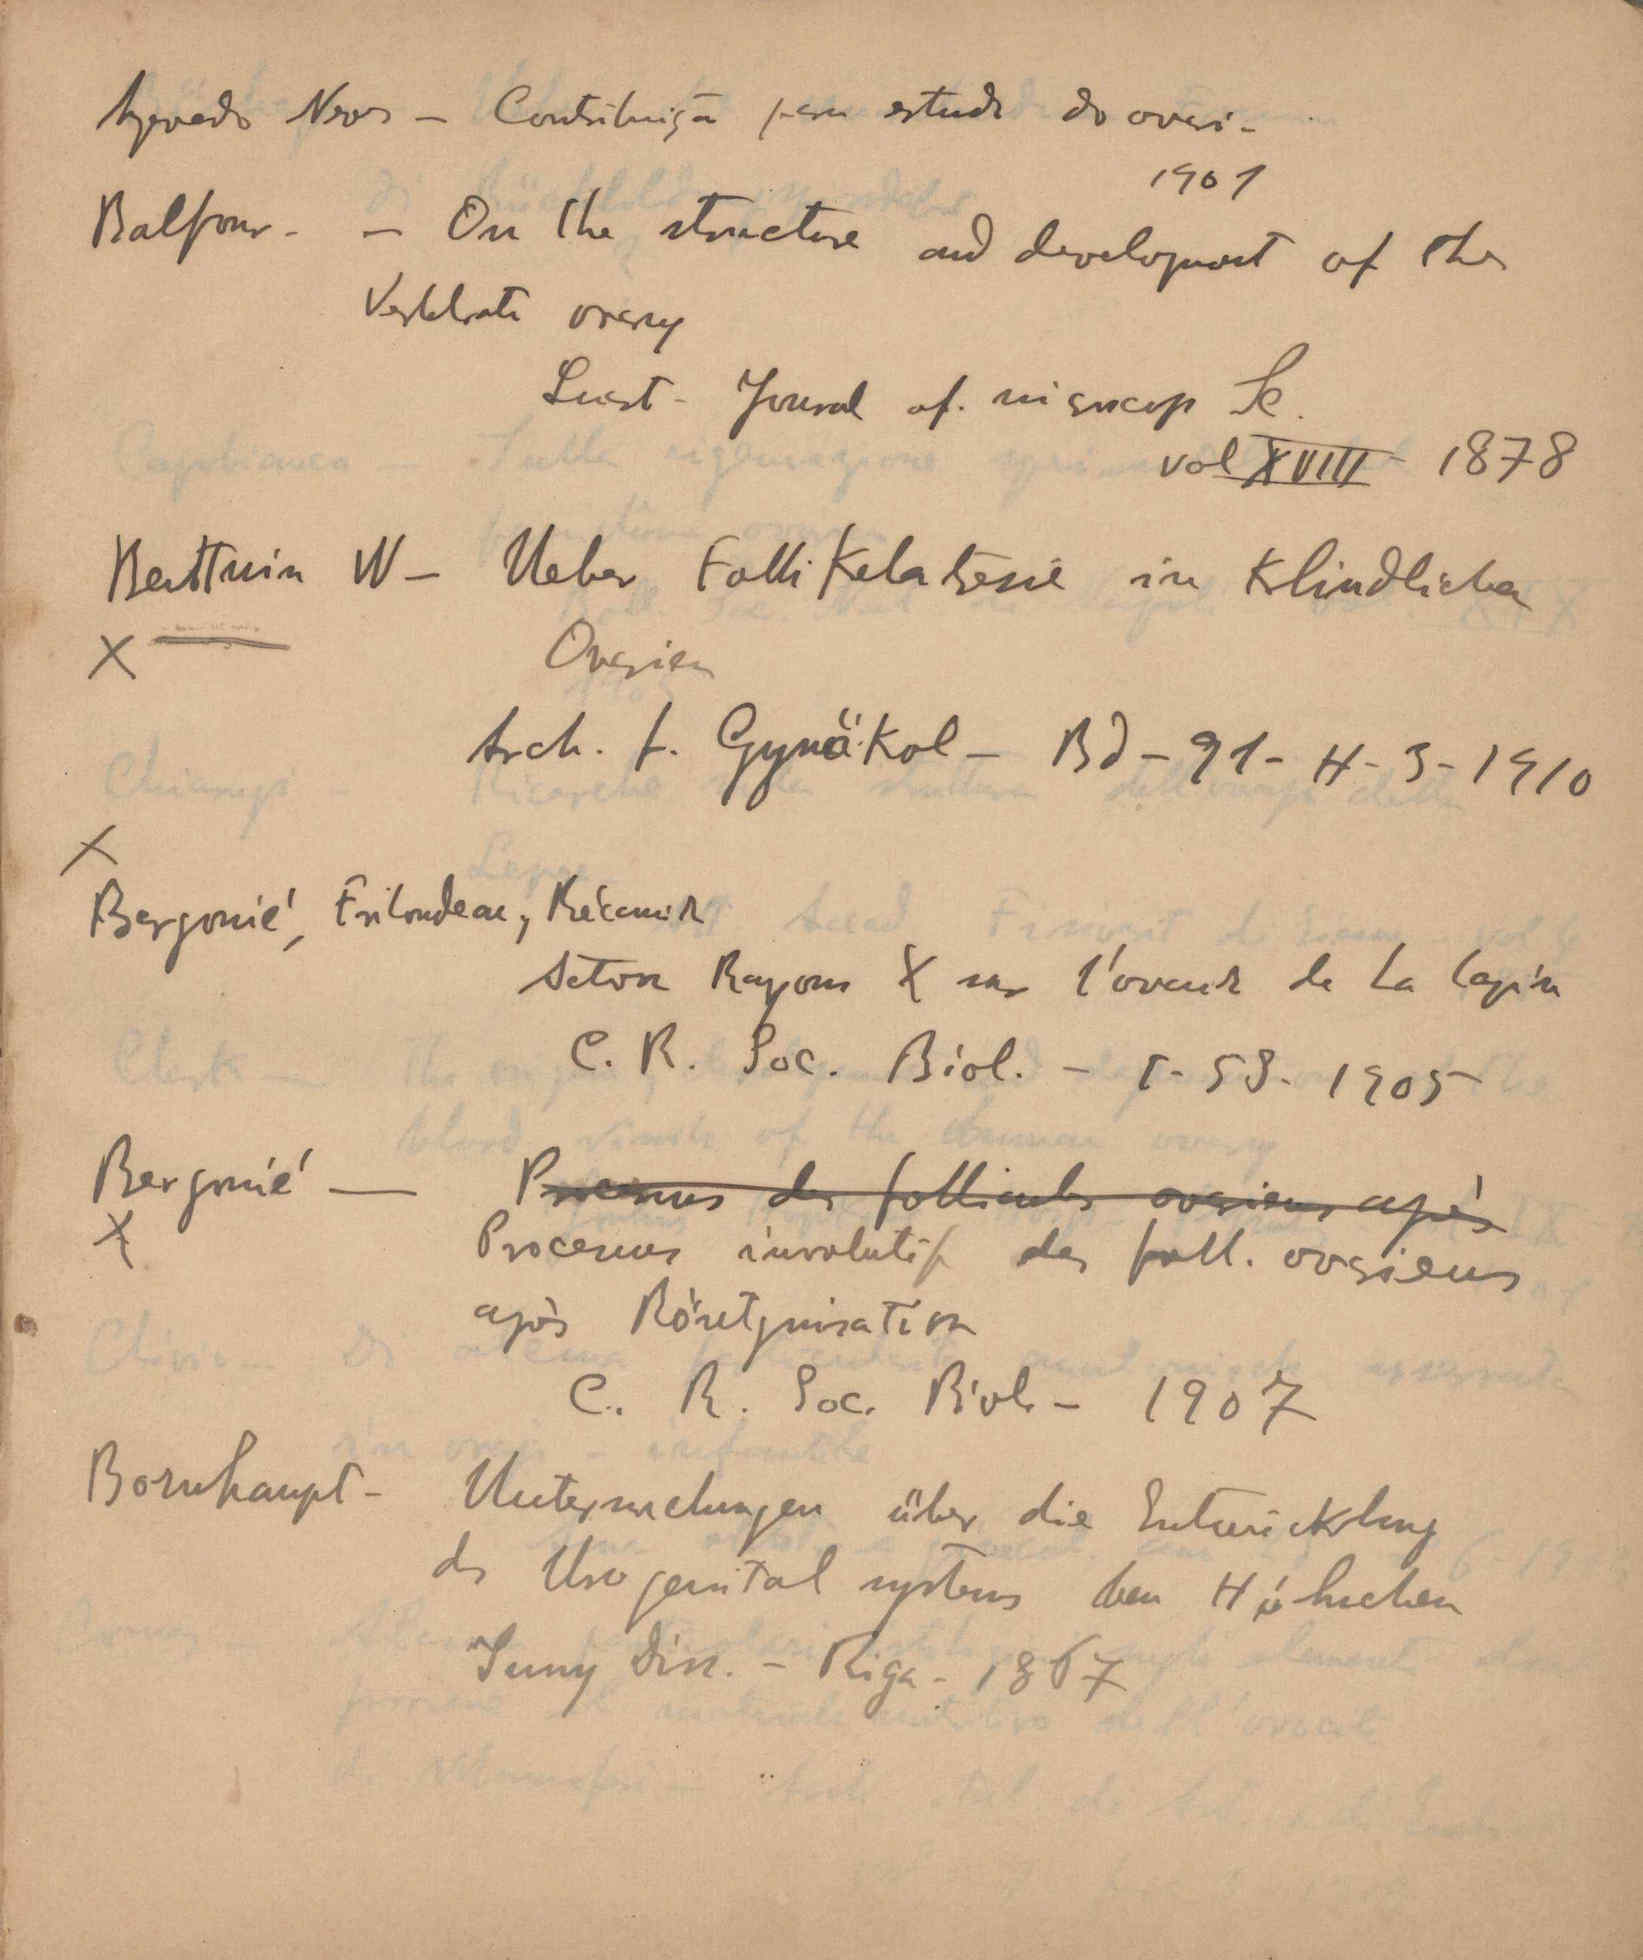 Azevedo Neves – Contribuiçã para estudo do ovari-
1901
Balfour. – On the structure and development of the
Vertebrate ovary
Quart- Journal of. microscop Sc.
vol XVIII - 1878
W – Ueber Follikelatresie in Kindlichen
X
Ovarien
Arch. f. Gynäkol – Bd – 91 - H - 3 - 1910
X
Bergonié, Tribondeau, Récamier
Action Rayons X sur l'ovaire de la lapin
C. R. Soc. Biol. – t - 59 - 1905
Bergonié — Processus des follicules ovariens après
X
Processus involutif des foll. ovariens
après Röntgnisation
C. R. Soc. Biol – 1907
Bornhaupt – Untersuchungen über die Entwicklung
des Urogenital systems beim Hühnchen
Diss. – Riga - 1867